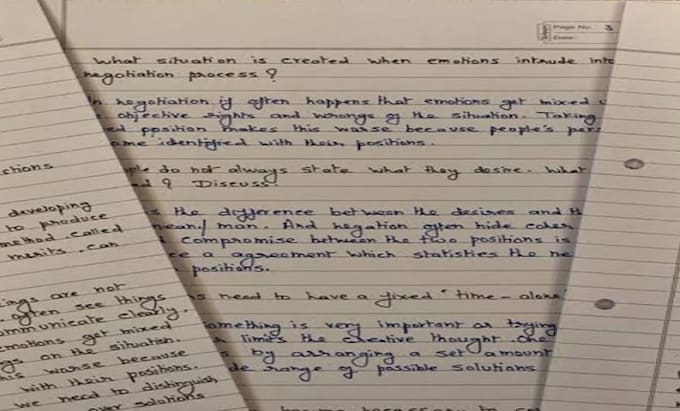 Page No. 3
Date:
What situation is created when emotions intrude into
negotiation process ?
In negotiation it often happens that emotions get mixed
objective rights and wrongs of the situation. Taking
position makes this worse because people's per
identified with their positions.
do not always state what they desire. What
? Discuss.
the difference between the desires and th
mean/man. And negation often hide
compromise between the two positions is
a agreement which statisties the ne
positions.
need to have a fixed "time - alone
omething is very important as trying
limits the creative thought. One
by arranging a set amount
de range of possible solutions
ctions
developing
to produce
method called
merits can
ings are not
often see things
ommunicate clearly.
emotions get mixed
gs on the situation.
his worse because
with their positions.
we need to distinguish
over solutions